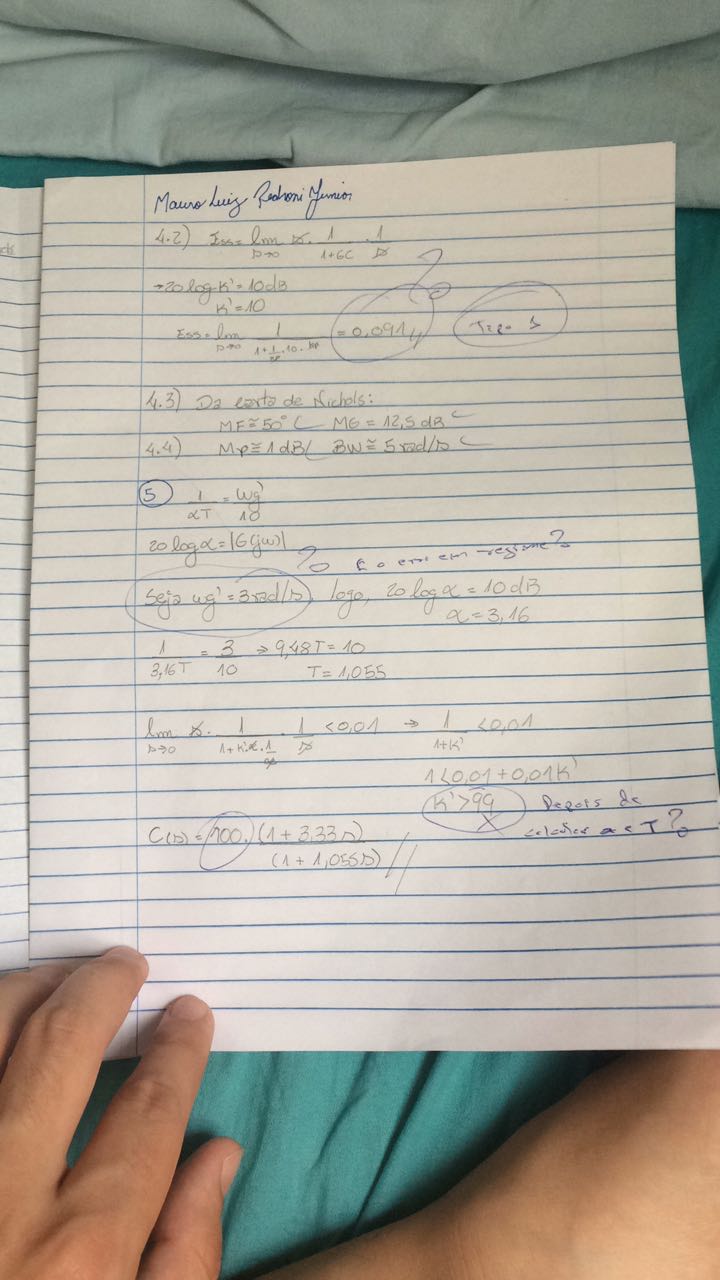 Mauro Luiz Redroni Junior
4.2) Ess = lim s . 1/(1+GC) . 1/s
s→0
→ 20 log K' = 10 dB
K' = 10
Ess = lim 1/(1 + 1/ . 10 . ) = 0,091 // ? Tipo 1
s→0
4.3) Da carta de Nichols:
MF ≅ 50° MG = 12,5 dB
4.4) Mp ≅ 1 dB BW ≅ 5 rad/s
5 1/(αT) = Wg'/10
20 log α = |G(jω)|
? E o erro em regime?
Seja ωg' = 3 rad/s, logo, 20 log α = 10 dB
α = 3,16
1/(3,16T) = 3/10 → 9,48T = 10
T = 1,055
lim s . 1/(1 + K'. . 1/ ) . 1/s < 0,01 → 1/(1+K') < 0,01
s→0
1 < 0,01 + 0,01K'
K' > 99 Depois de
calcular α e T?
C(s) = 100 . (1 + 3,33s)/(1 + 1,055s) //